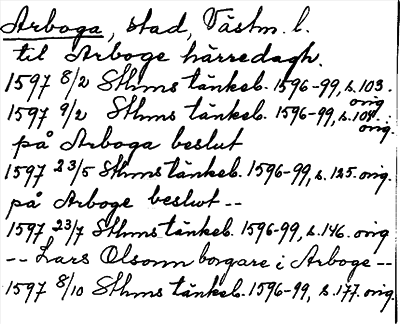 Arboga, stad, Västm. l.
til Arboge härredagh.
1597 8/2 Sthms tänkeb. 1596-99, s. 103. orig
1597 9/2 Sthms tänkeb. 1596-99, s. 104. orig.
på Arboga beslut
1597 23/5 Sthms tänkeb. 1596-99, s. 125. orig.
på Arboge beslut --
1597 23/7 Sthms tänkeb. 1596-99, s. 146. orig
-- Lars Olsonn borgare i Arboge --
1597 8/10 Sthms tänkeb. 1596-99, s. 177. orig.